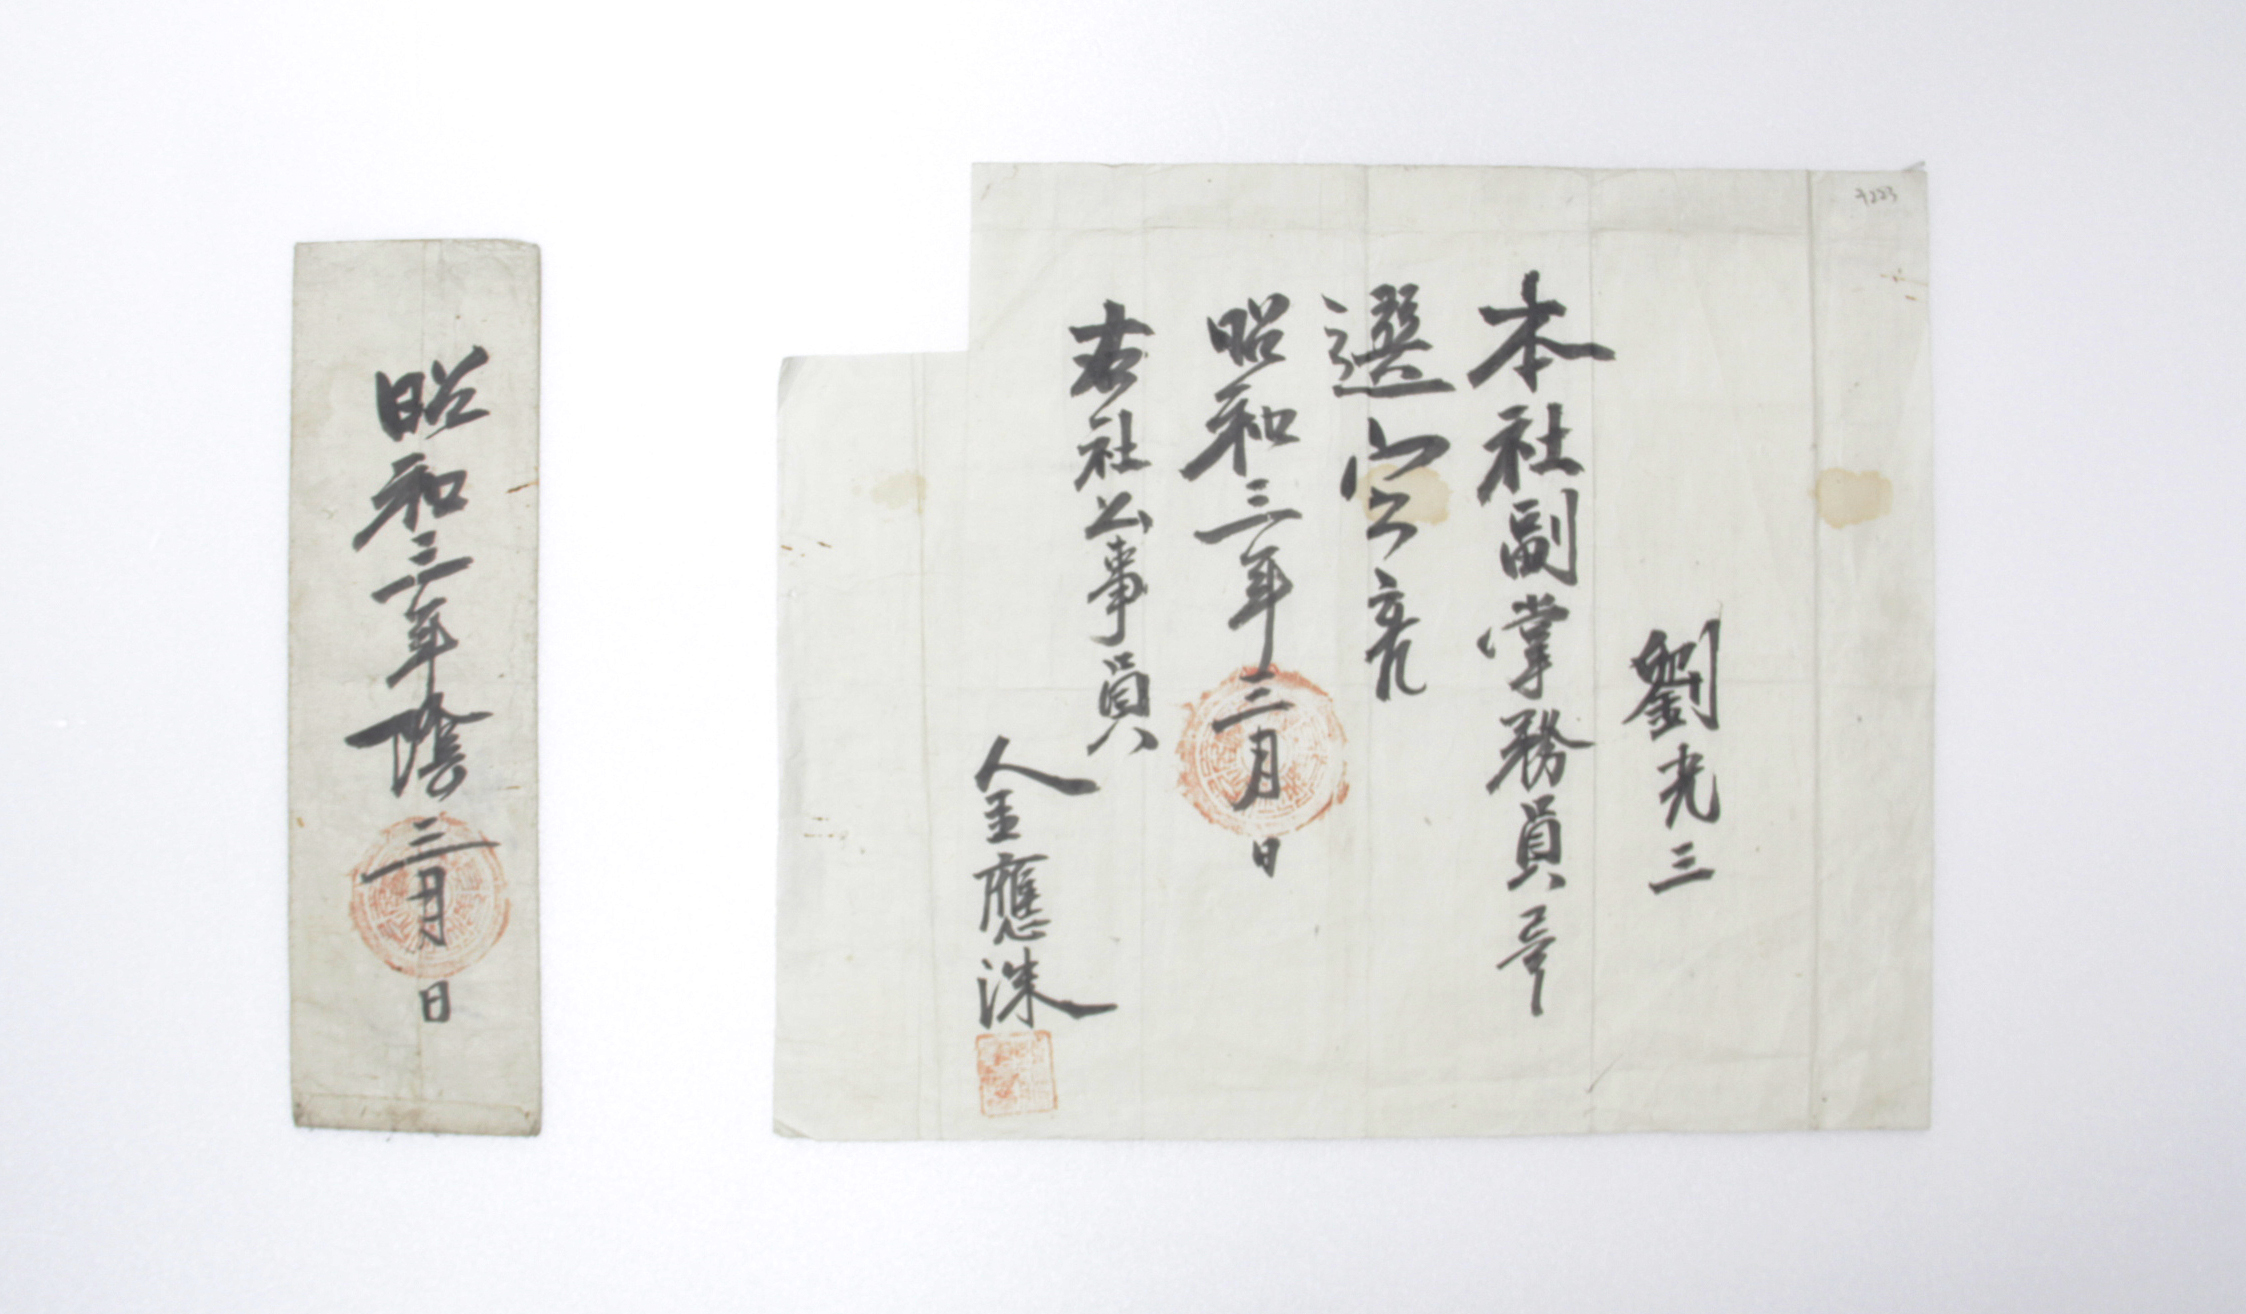 劉光三
本社副掌務員
選定
昭和三年三月 日
右社公事員
金應洙
昭和三年陰三月 日